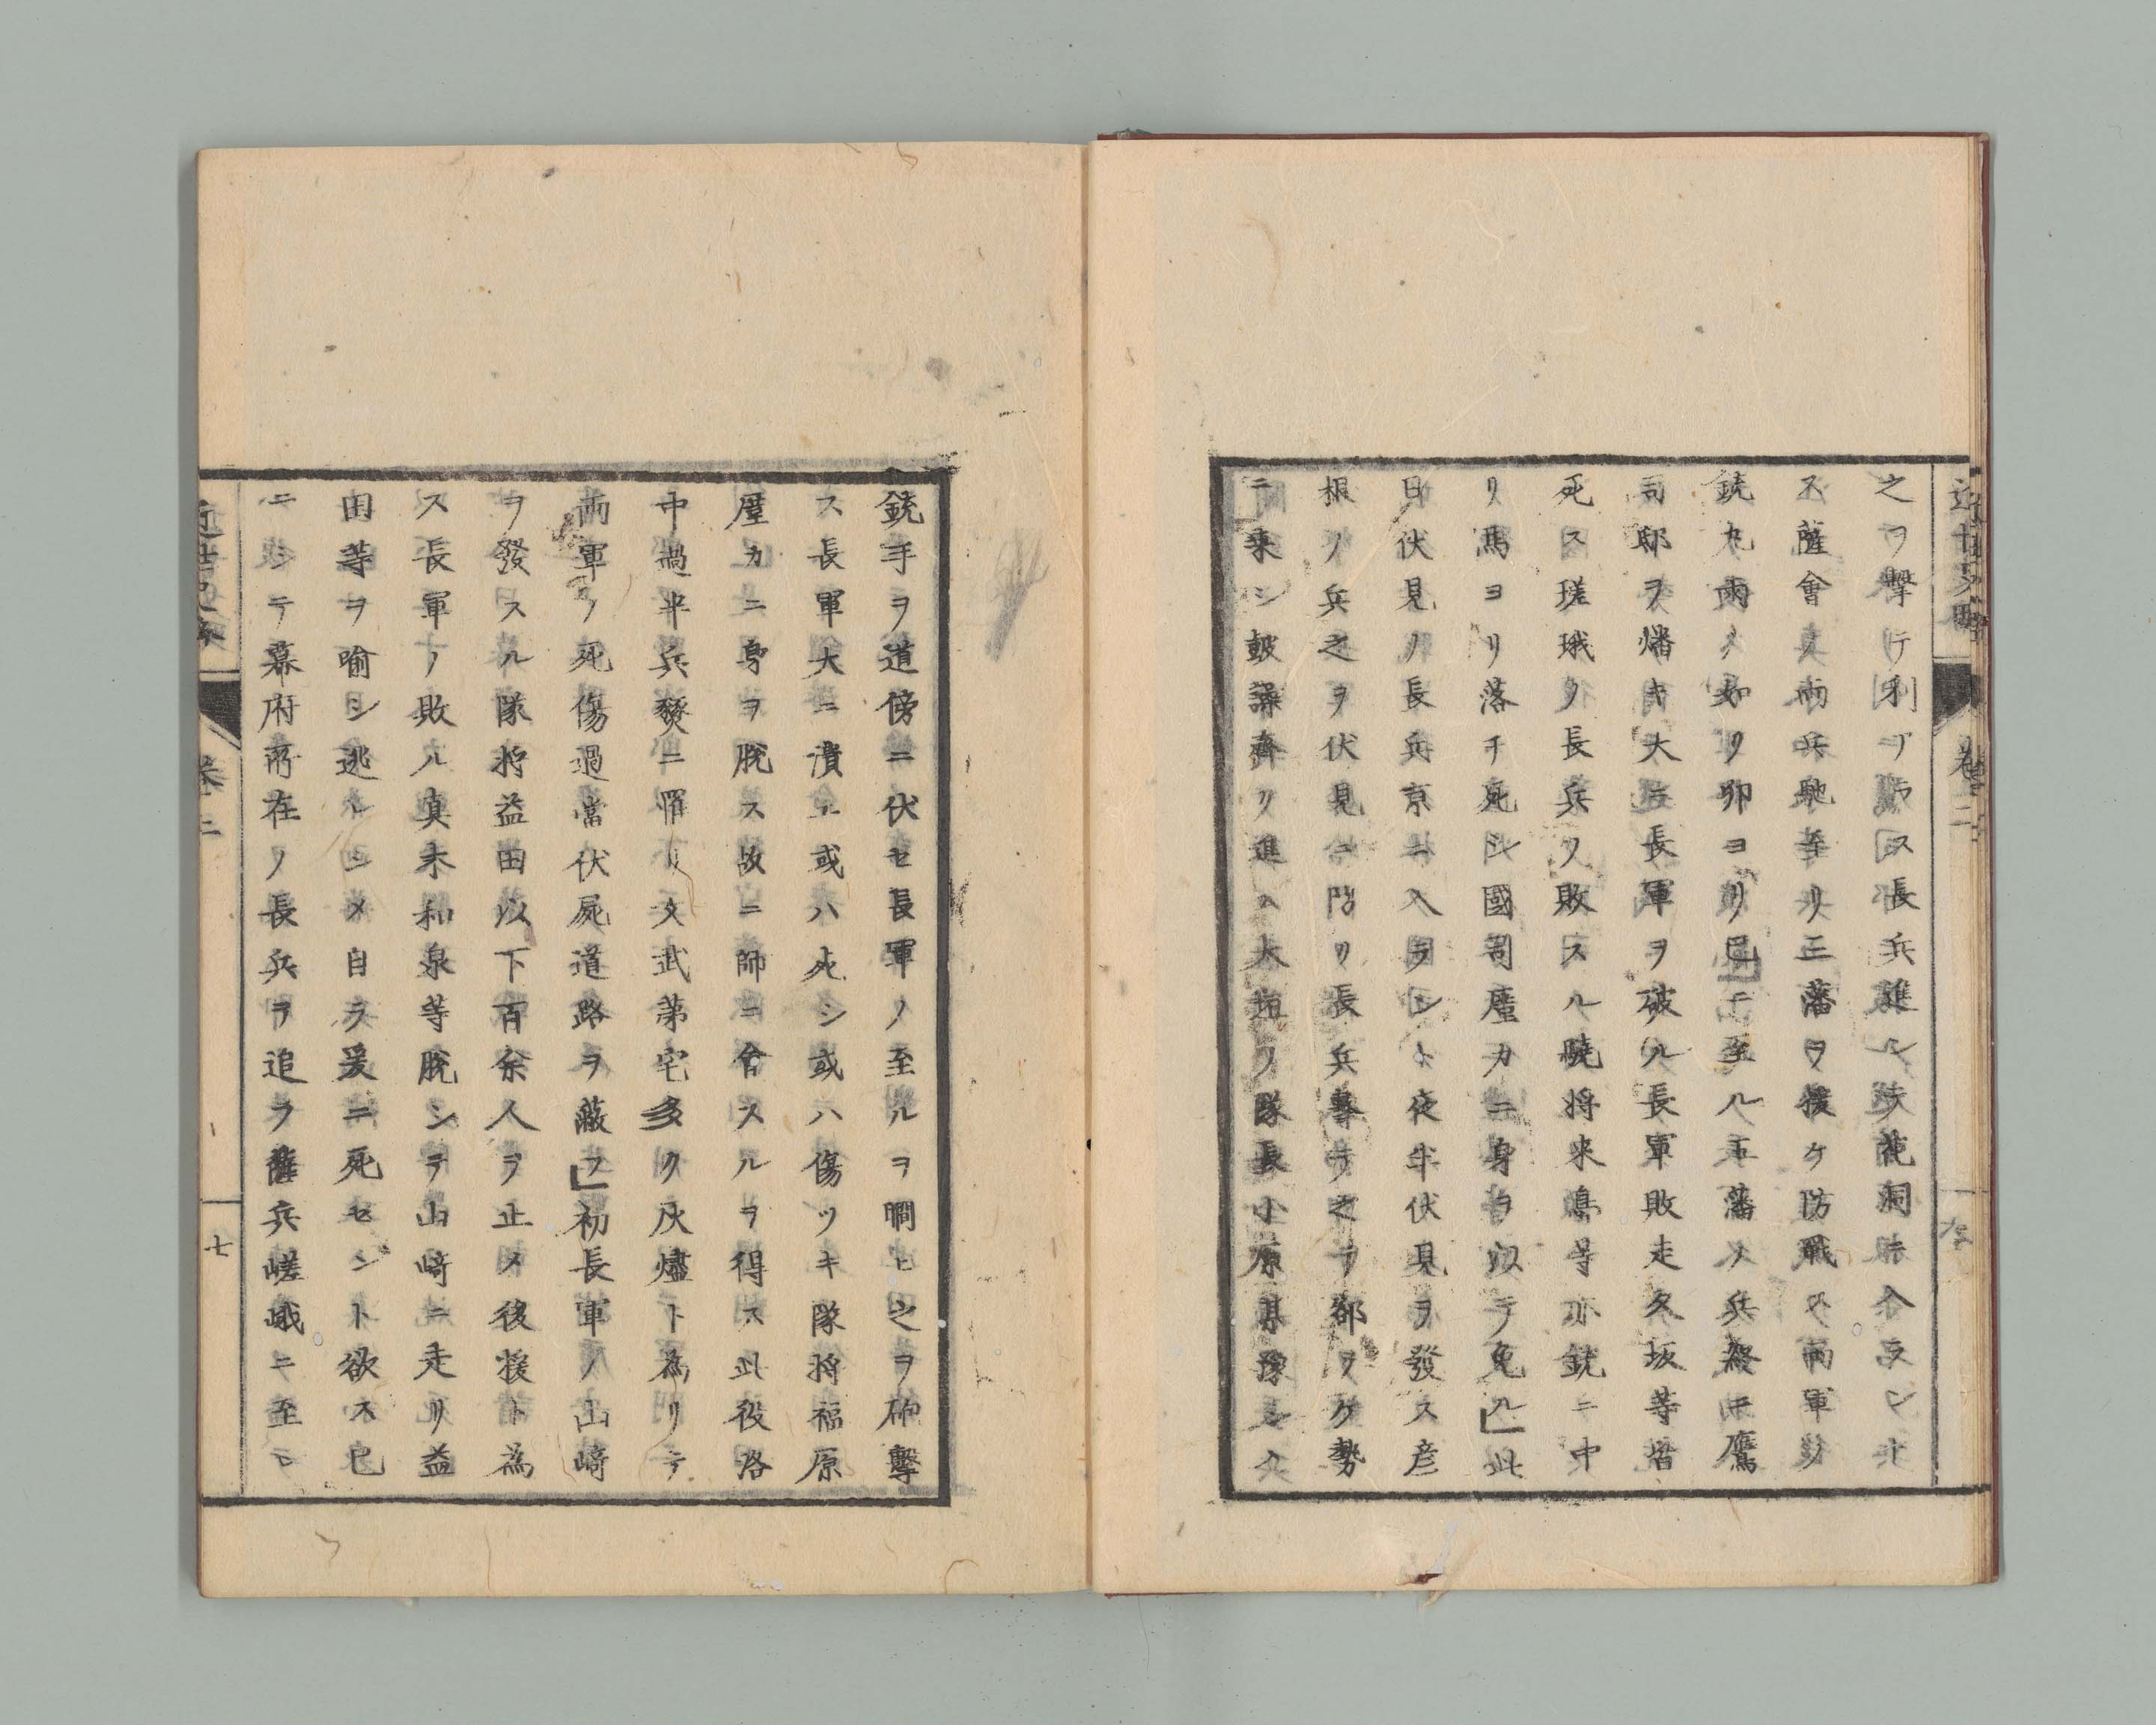 之ヲ撃テ利アラス長兵進ンテ
ス薩會ノ両兵馳至リ三藩ヲ援ケ防戦ス両軍
銃丸雨ノ如ク卯ヨリ巳ニ至ル五藩ノ兵鷹
司邸ヲ燔キ大ニ長軍ヲ破ル長軍敗走久坂等皆
死ス嵯峨ノ長兵又敗スル驍将来嶋等亦銃ニ中
リ馬ヨリ落チ死シ國司廑カニ身ヲ以テ免ル此
日伏見ノ長兵京ニ入ラント夜半伏見ヲ發ス彦
根ノ兵之ヲ伏見ニ長兵撃テ之ヲ郤ケ勢
ニ乗シ鼓譟齊ク進ム大垣ノ隊長小原
銃手ヲ道傍ニ伏セ長軍ノ至ルヲ瞷ヒ之ヲ砲撃
ス長軍大ニ潰エ或ハ死シ或ハ傷ツキ隊将福原
廑カニ身ヲ脱ス故ニ師ニ會スルヲ得ス此役洛
中過半兵燹ニ罹リ文武第宅多ク灰燼ト為リテ
両軍ノ死傷過當伏屍道路ヲ蔽フ初長軍ノ山﨑
ヲ發スル隊将益田以下百余人ヲ止メ後援ト為
ス長軍ノ敗ル真木和泉等脱シテ山﨑ニ走リ益
田等ヲ喩シ逃レシメ自ラ爰ニ死セント欲ス已
ニシテ幕府所在ノ長兵ヲ追フ薩兵嵯峨ニ至ラ
卷二
七